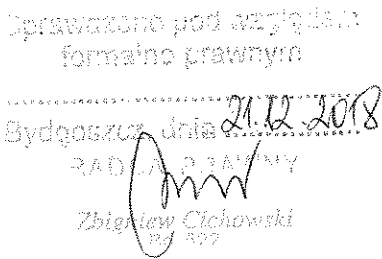 Sprawdzono pod względem
formalno prawnym
Bydgoszcz, dnia 21.12.2018
RADCA PRAWNY
Zbigniew Cichowski